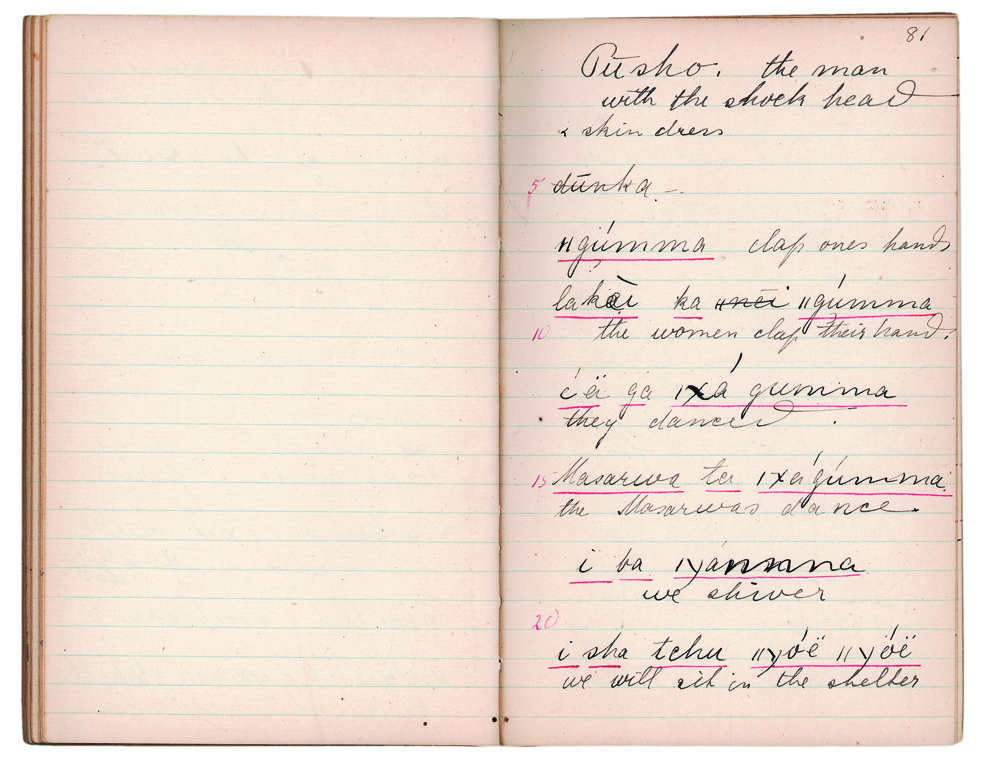 81
Pūsho. the man
with the shock head
& skin dress
5 dūnka –
ǁgúmma clap ones hands
lakài ka ǁnēi ǁgúmma
10 the women clap their hands.
é ä ga ıxá gumma
they danced.
15 Masarwa ta ıxágúmma.
the Masarwas dance.
i ba
we shiver
20
i sha tchu ǁyóë ǁyóë
we will sit in the shelter